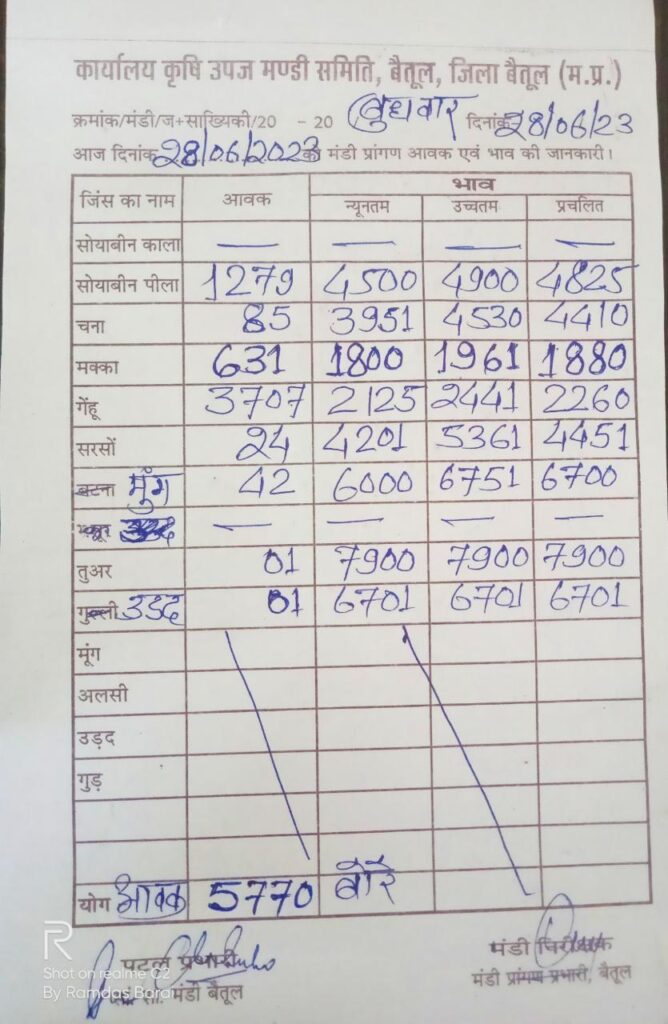 कार्यालय कृषि उपज मण्डी समिति, बैतूल, जिला बैतूल (म.प्र.)
क्रमांक/मंडी/ज+सांख्यिकी/20 - 20 बुधवार दिनांक 28/06/23
आज दिनांक 28/06/2023 को मंडी प्रांगण आवक एवं भाव की जानकारी।
जिंस का नाम आवक भाव
न्यूनतम उच्चतम प्रचलित
सोयाबीन काला — — — —
सोयाबीन पीला 1279 4500 4900 4825
चना 85 3951 4530 4410
मक्का 631 1800 1961 1880
गेंहू 3707 2125 2441 2260
सरसों 24 4201 5361 4451
बटना मुंग 42 6000 6751 6700
— — — —
तुअर 01 7900 7900 7900
गुल्ली उडद 01 6701 6701 6701
मूंग
अलसी
उड़द
गुड़
योग आवक 5770 बोरे
पटल प्रभारी
मंडी बैतूल
मंडी निरीक्षक
मंडी प्रांगण प्रभारी, बैतूल
R
Shot on realme C2
By Ramdas Barai